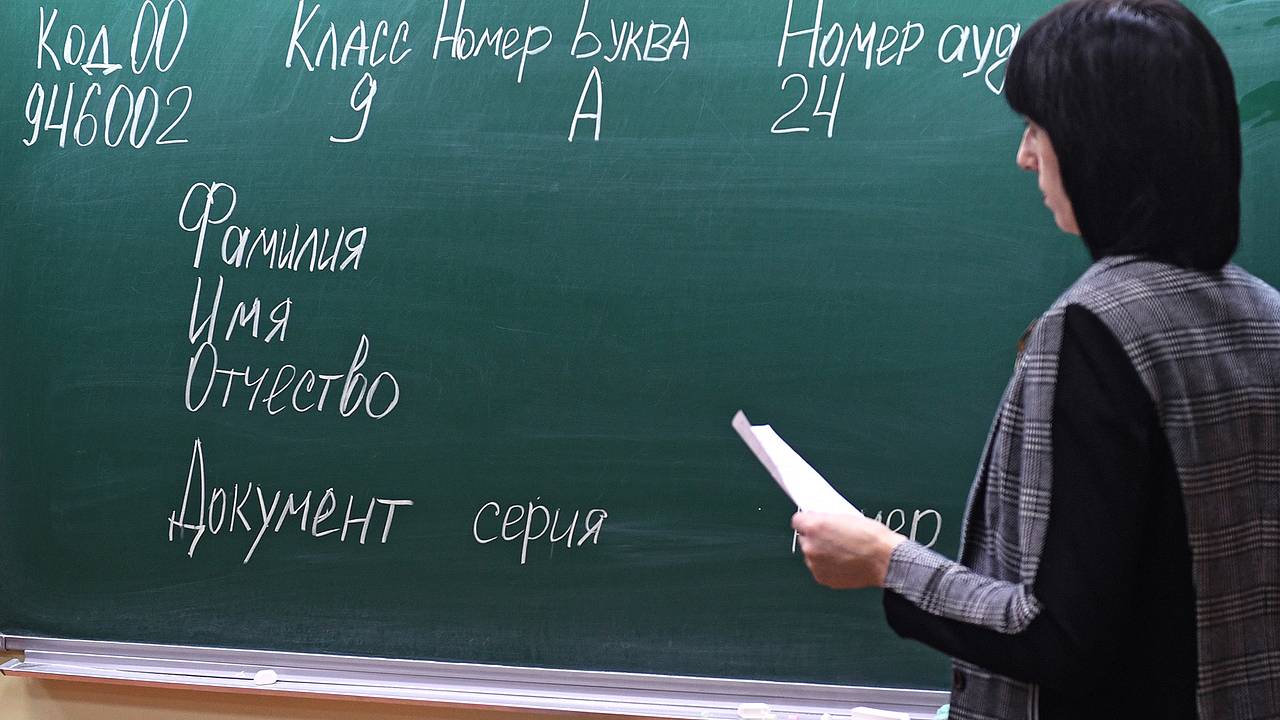 Код ОО Класс Номер Буква Номер ауд
946002 9 А 24
Фамилия
Имя
Отчество
Документ серия